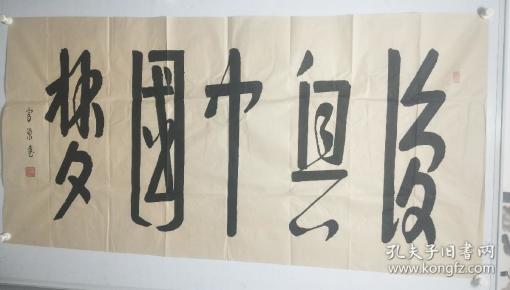 復興中國夢
孔夫子旧书网
www.kongfz.com